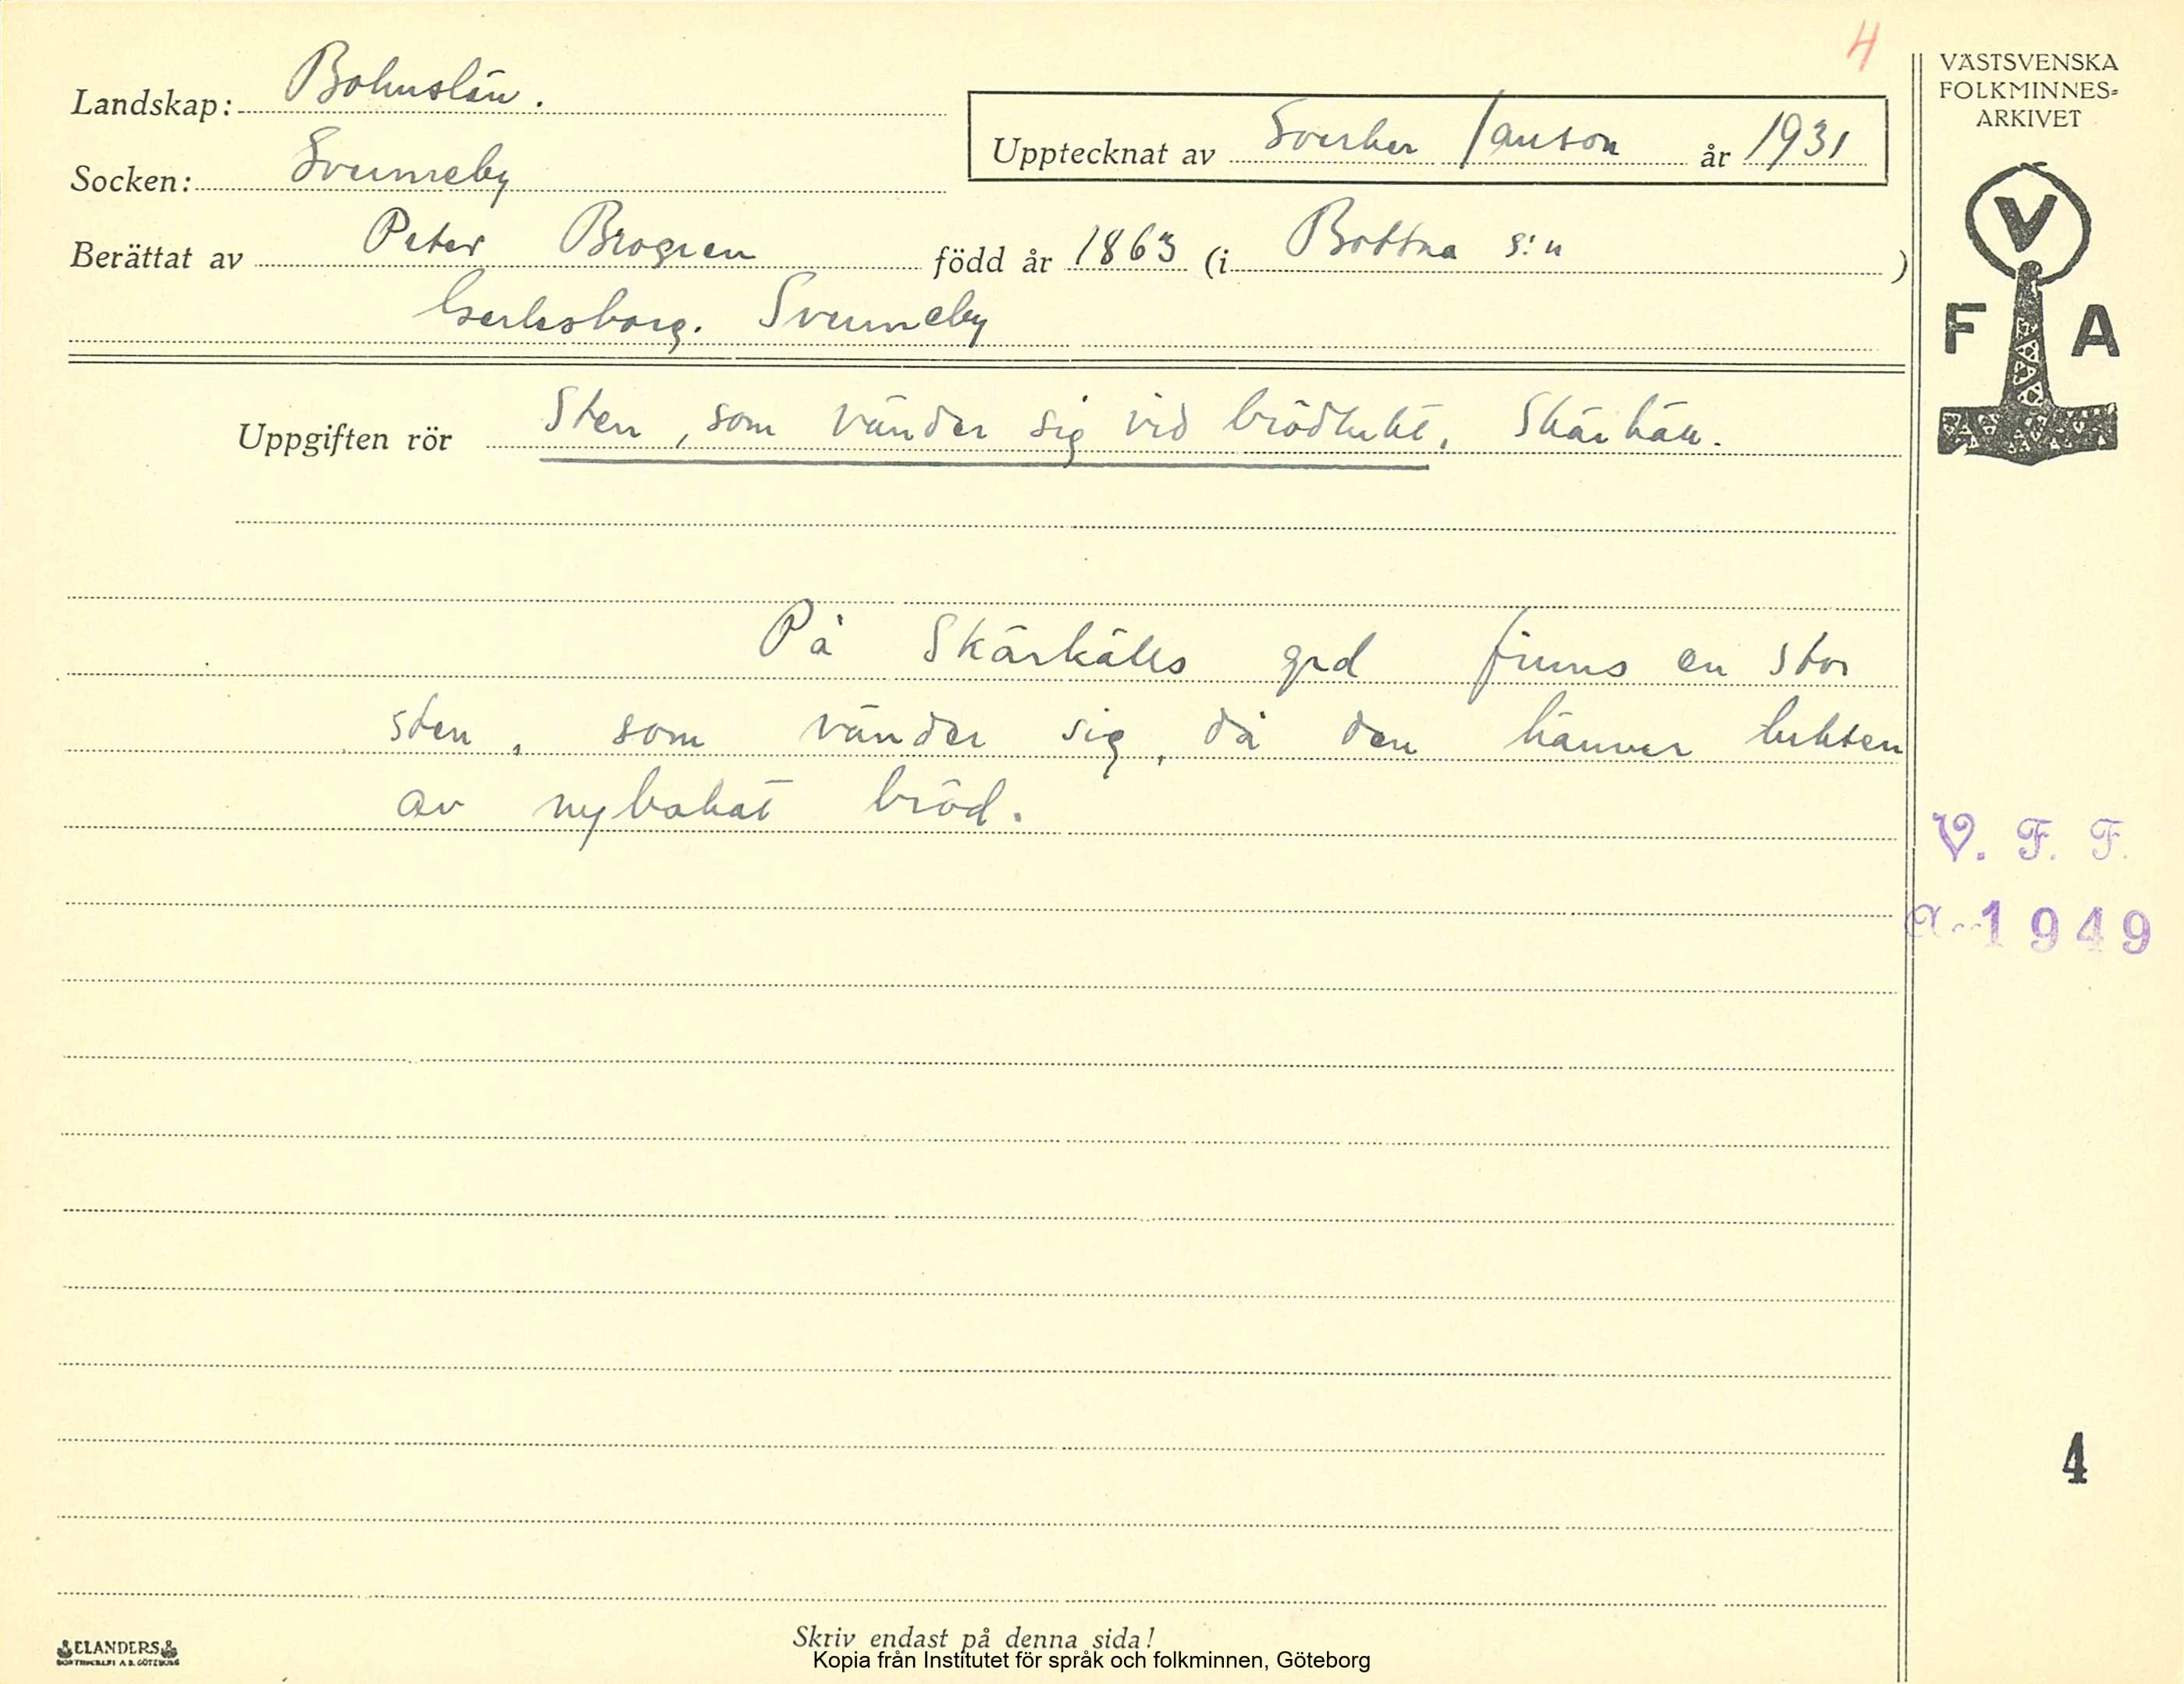 4
Landskap: Bohuslän.
Upptecknat av Sverker Janson år 1931
Socken: Svenneby
Berättat av Peter Brogren född år 1863 (i Bottna s:n )
Gerlesborg. Svenneby
Uppgiften rör Sten, som vänder sig vid brödlukt. Skärkäll.
På Skärkälls grd finns en stor
sten, som vänder sig, då den känner lukten
av nybakat bröd.
VÄSTSVENSKA
FOLKMINNES=
ARKIVET
V
F A
V. F. F.
1949
4
Skriv endast på denna sida!
ELANDERS
Kopia från Institutet för språk och folkminnen, Göteborg